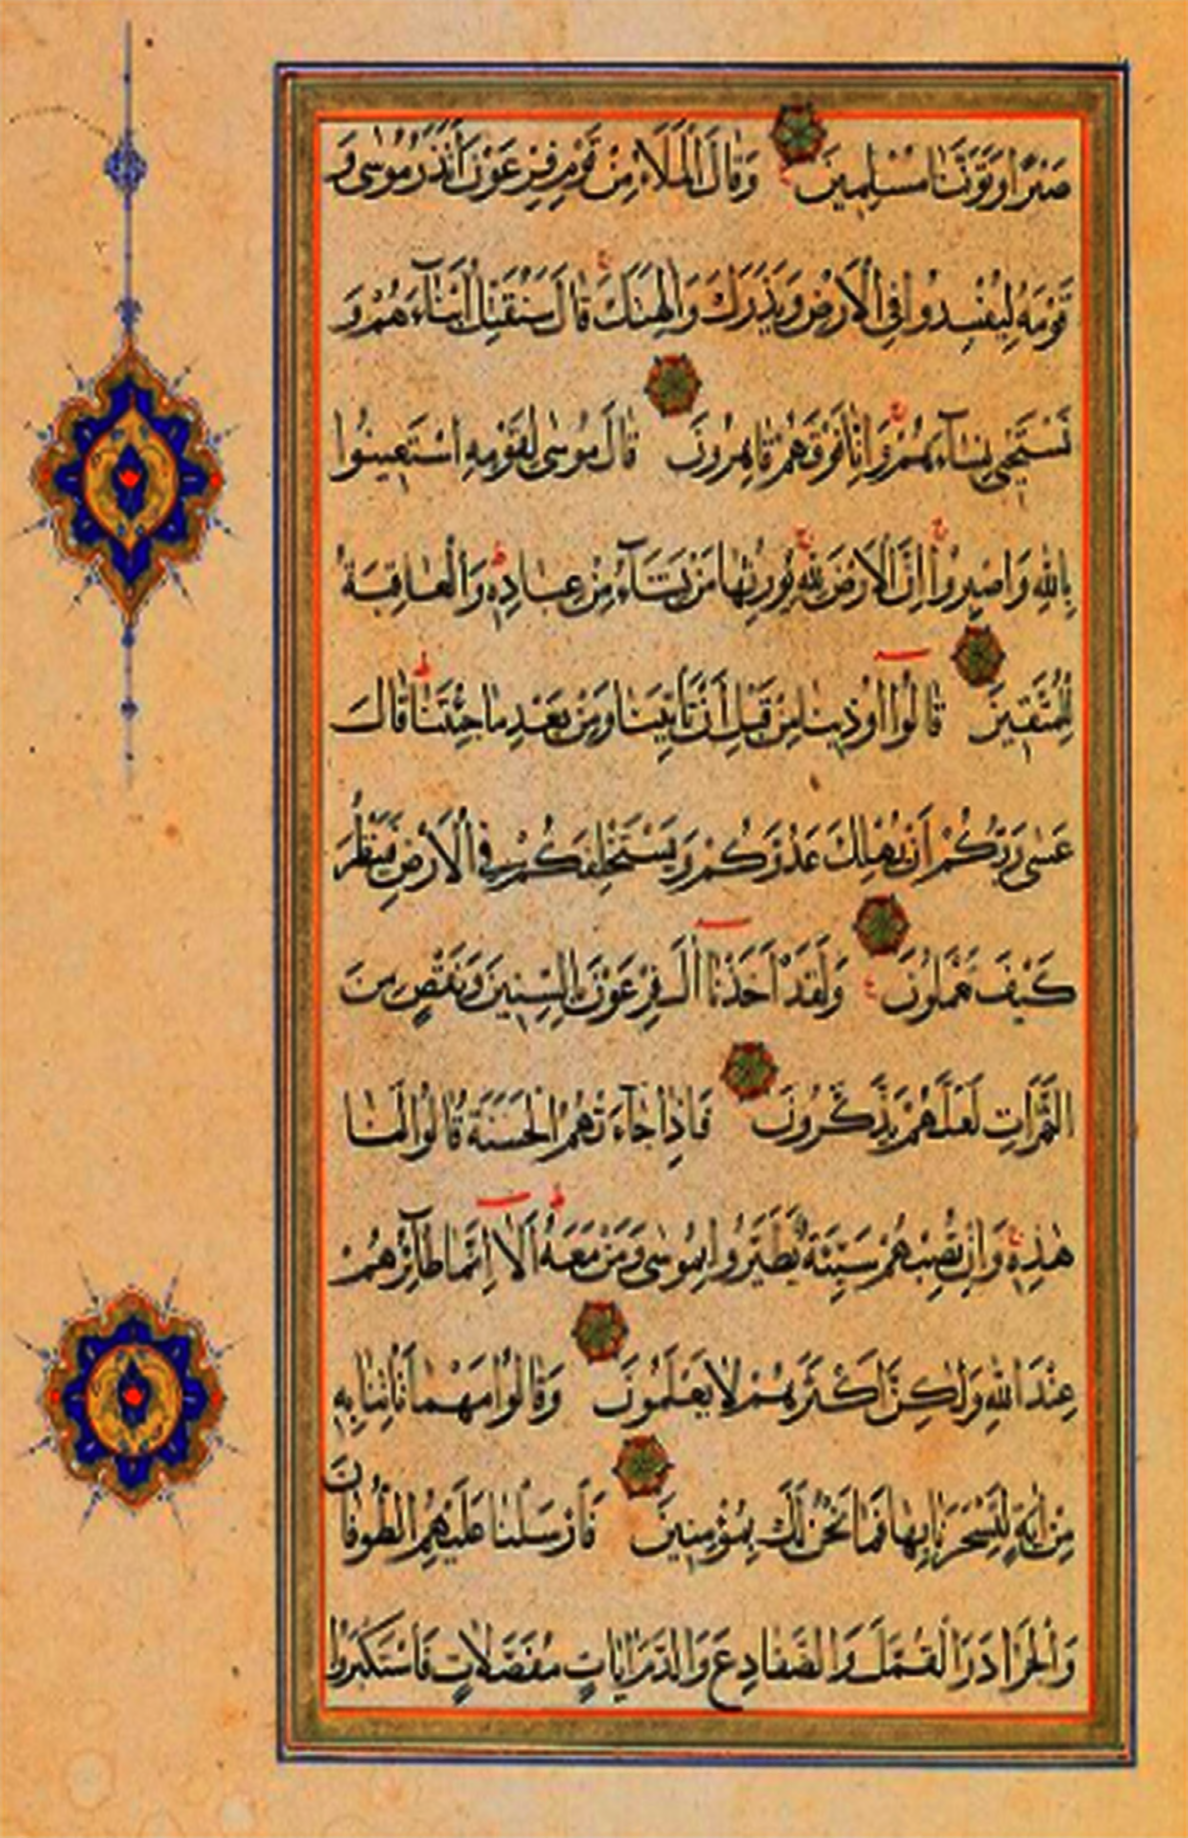 صَبْرًا وَتَوَفَّنَا مُسْلِمِينَ وَقَالَ الْمَلَاُ مِنْ قَوْمِ فِرْعَوْنَ اَتَذَرُ مُوسٰى وَ
قَوْمَهُ لِيُفْسِدُوا فِى الْاَرْضِ وَيَذَرَكَ وَاٰلِهَتَكَ قَالَ سَنُقَتِّلُ اَبْنَآءَهُمْ وَ
نَسْتَحْيِى نِسَآءَهُمْ وَاِنَّا فَوْقَهُمْ قَاهِرُونَ قَالَ مُوسٰى لِقَوْمِهِ اسْتَعِينُوا
بِاللّٰهِ وَاصْبِرُوا اِنَّ الْاَرْضَ لِلّٰهِ يُورِثُهَا مَنْ يَشَآءُ مِنْ عِبَادِهِ وَالْعَاقِبَةُ
لِلْمُتَّقِينَ قَالُوا اُوذِينَا مِنْ قَبْلِ اَنْ تَاْتِيَنَا وَمِنْ بَعْدِ مَا جِئْتَنَا قَالَ
عَسٰى رَبُّكُمْ اَنْ يُهْلِكَ عَدُوَّكُمْ وَيَسْتَخْلِفَكُمْ فِى الْاَرْضِ فَيَنْظُرَ
كَيْفَ تَعْمَلُونَ وَلَقَدْ اَخَذْنَا اٰلَ فِرْعَوْنَ بِالسِّنِينَ وَنَقْصٍ مِنَ
الثَّمَرَاتِ لَعَلَّهُمْ يَذَّكَّرُونَ فَاِذَا جَآءَتْهُمُ الْحَسَنَةُ قَالُوا لَنَا
هٰذِهِ وَاِنْ تُصِبْهُمْ سَيِّئَةٌ يَطَّيَّرُوا بِمُوسٰى وَمَنْ مَعَهُ اَلَا اِنَّمَا طَآئِرُهُمْ
عِنْدَ اللّٰهِ وَلٰكِنَّ اَكْثَرَهُمْ لَا يَعْلَمُونَ وَقَالُوا مَهْمَا تَاْتِنَا بِهِ
مِنْ اٰيَةٍ لِتَسْحَرَنَا بِهَا فَمَا نَحْنُ لَكَ بِمُؤْمِنِينَ فَاَرْسَلْنَا عَلَيْهِمُ الطُّوفَانَ
وَالْجَرَادَ وَالْقُمَّلَ وَالضَّفَادِعَ وَالدَّمَ اٰيَاتٍ مُفَصَّلَاتٍ فَاسْتَكْبَرُوا